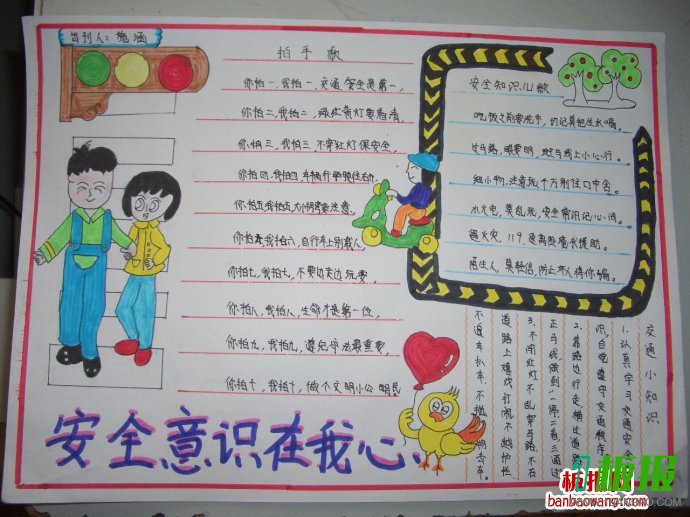 出刊人：施涵
拍手歌
你拍一，我拍一，交通安全是第一，
你拍二，我拍二，绿红黄灯要看清，
你拍三，我拍三，不穿红灯保安全，
你拍四，我拍四，车辆行驶
你拍五，我拍五，大小拐弯要注意，
你拍六，我拍六，自行车上别载人，
你拍七，我拍七，不要边走边玩耍，
你拍八，我拍八，生命才是第一位，
你拍九，我拍九，遵纪守法最重要，
你拍十，我拍十，做个文明小公明民
安全知识儿歌
吃饭之前要洗手，切记莫把生水喝。
过马路，眼要明，斑马线上小心行。
细小物，注意玩，千万别往口中含。
水火电，莫乱玩，安全常识记心间。
遇火灾，119，是离险境求援助。
陌生人，莫轻信，防止坏人将你骗。
交通小知识
1.认真学习交通安全
识，自觉遵守交通秩序。
2.靠路边行走，横过道路
走斑马线，做到一停二看三通过
3.不闯红灯，不乱穿马路，不在
道路上嬉戏打闹，不越护栏，
不追车、扒车、不抛物击车。
安全意识在我心、
板报
banbaowang.com